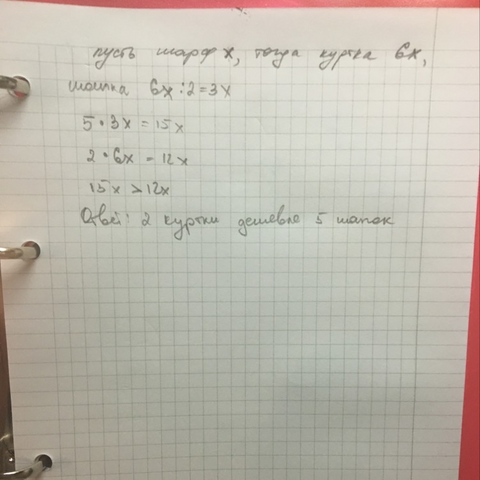 пусть шарф x, тогда куртка 6x,
шапка 6x:2=3x
5·3x=15x
2·6x=12x
15x>12x
Ответ: 2 куртки дешевле 5 шапок